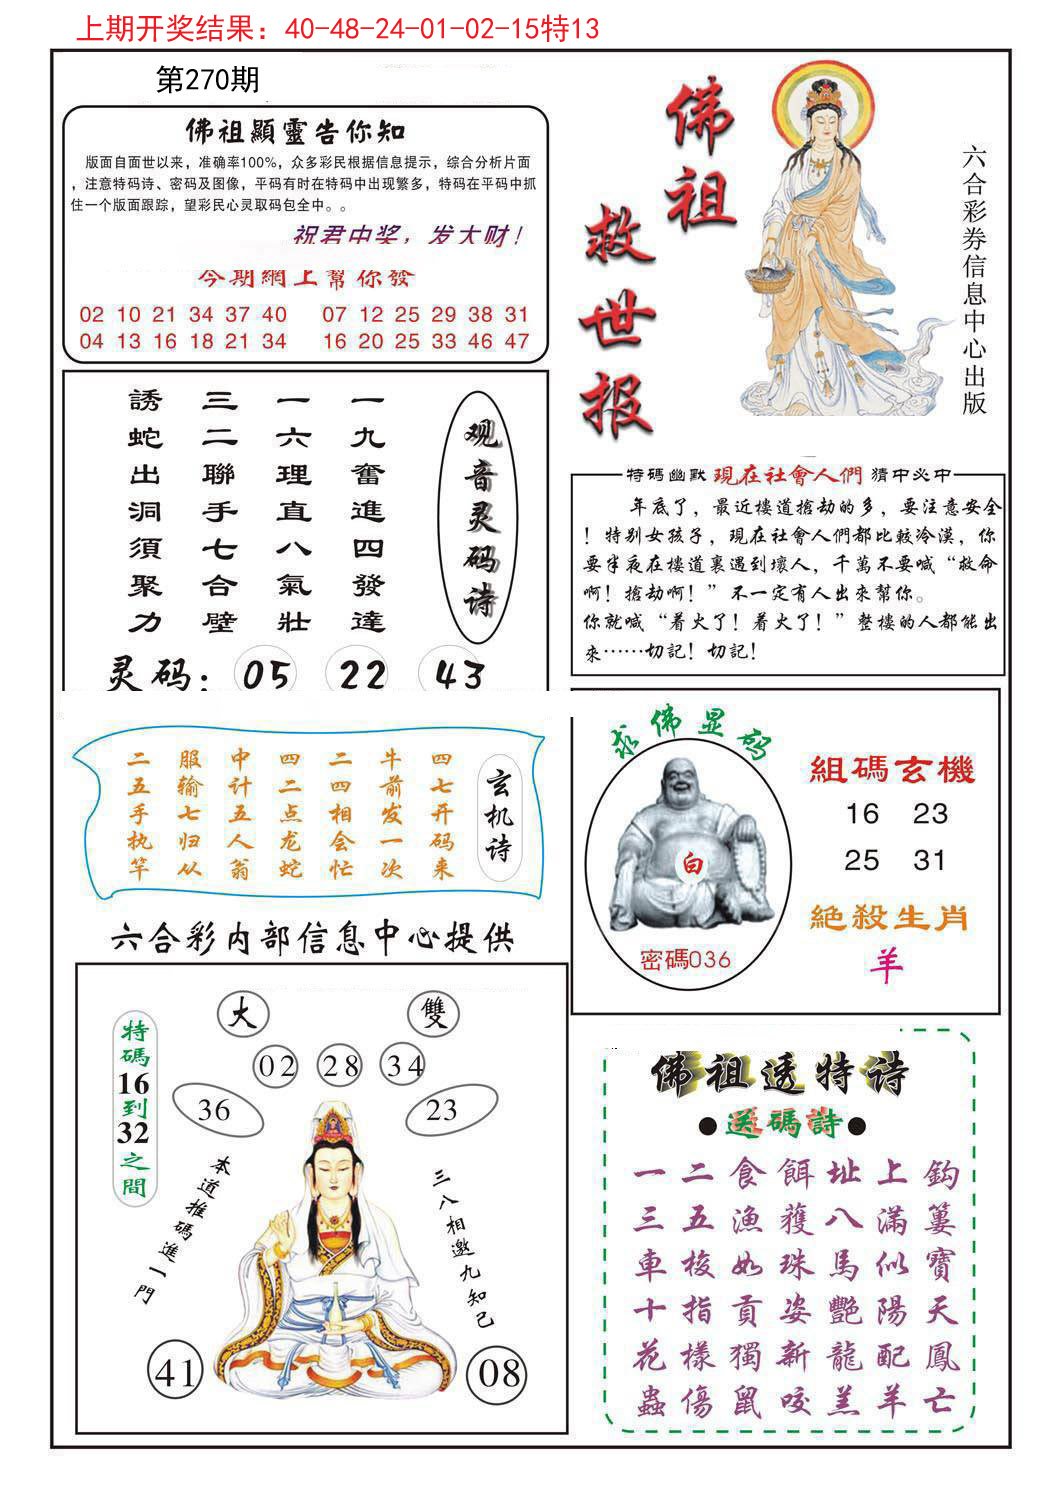 上期开奖结果：40-48-24-01-02-15特13
第270期
佛祖顯靈告你知
版面自面世以来，准确率100%，众多彩民根据信息提示，综合分析片面
，注意特码诗、密码及图像，平码有时在特码中出现繁多，特码在平码中抓
住一个版面跟踪，望彩民心灵取码包全中。。
祝君中奖，发大财！
今期網上幫你發
02 10 21 34 37 40 07 12 25 29 38 31
04 13 16 18 21 34 16 20 25 33 46 47
佛祖
救世报
六合彩券信息中心出版
观音灵码诗
一九奮進四發達
一六理直八氣壯
三二聯手七合壁
誘蛇出洞須聚力
灵码：05 22 43
特碼幽默 現在社會人們 猜中必中
年底了，最近樓道搶劫的多，要注意安全
！特别女孩子，現在社會人們都比較冷漠，你
要半夜在樓道裏遇到壞人，千萬不要喊“救命
啊！搶劫啊！”不一定有人出來幫你。
你就喊“着火了！着火了！”整樓的人都能出
來……切記！切記！
玄机诗
四七开码来
牛前发一次
二四相会忙
四二点龙蛇
中计五人翁
服输七归从
二五手执竿
求佛显码
白
密碼036
組碼玄機
16 23
25 31
絕殺生肖
羊
六合彩内部信息中心提供
特碼16到32之間
大 雙
02 28 34
36 23
本道推碼進一門
三八相邀九知己
41 08
佛祖透特诗
●送碼詩●
一二食餌址上鈎
三五漁獲八滿簍
車梭如珠馬似寶
十指貢姿艷陽天
花樣獨新龍配鳳
蟲傷鼠咬羔羊亡